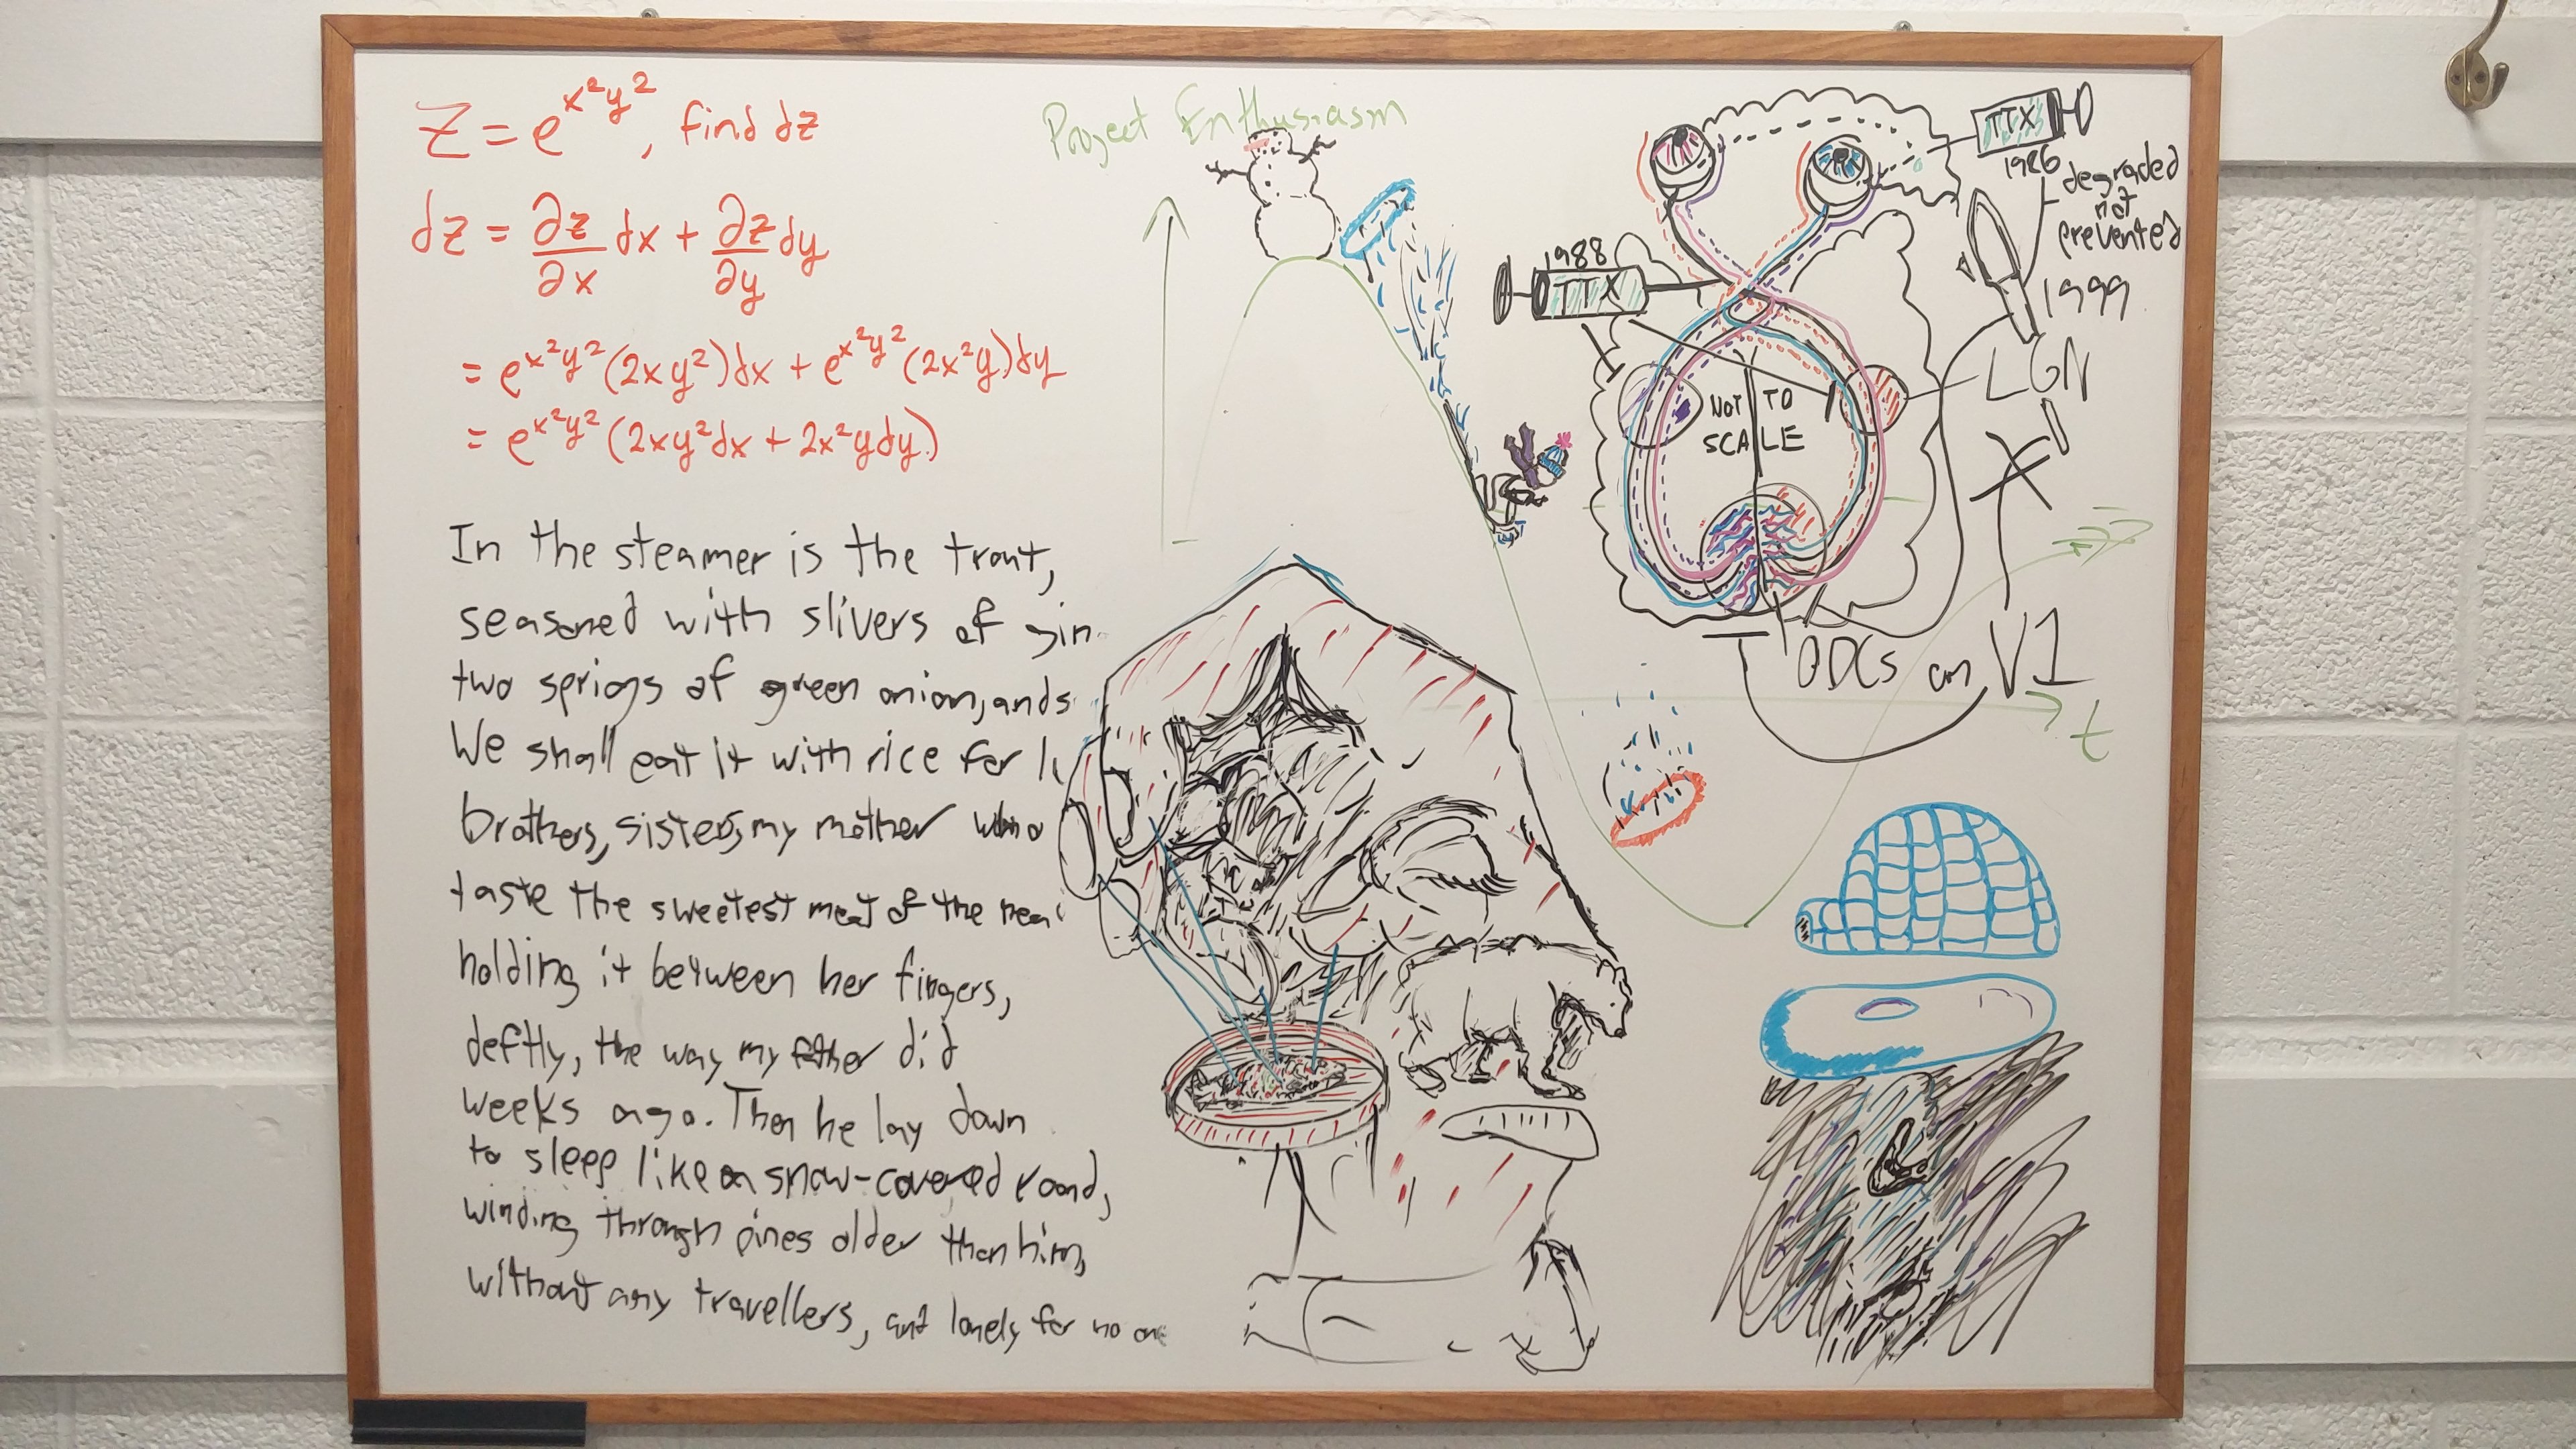 z = e^{x²y²}, find dz
dz = ∂z/∂x dx + ∂z/∂y dy
= e^{x²y²}(2xy²)dx + e^{x²y²}(2x²y)dy
= e^{x²y²}(2xy²dx + 2x²ydy)
In the steamer is the trout,
seasoned with slivers of gin
two sprigs of green onion, and s
We shall eat it with rice for lu
brothers, sister, my mother who
taste the sweetest meat of the hea
holding it between her fingers,
deftly, the way my father did
weeks ago. Then he lay down
to sleep like a snow-covered road,
winding through pines older than him,
without any travellers, and lonely for no one
Project Enthusiasm
t
TTX
1986
degraded
not
prevented
1988
TTX
1999
LGN
NOT TO
SCALE
ODCs on V1